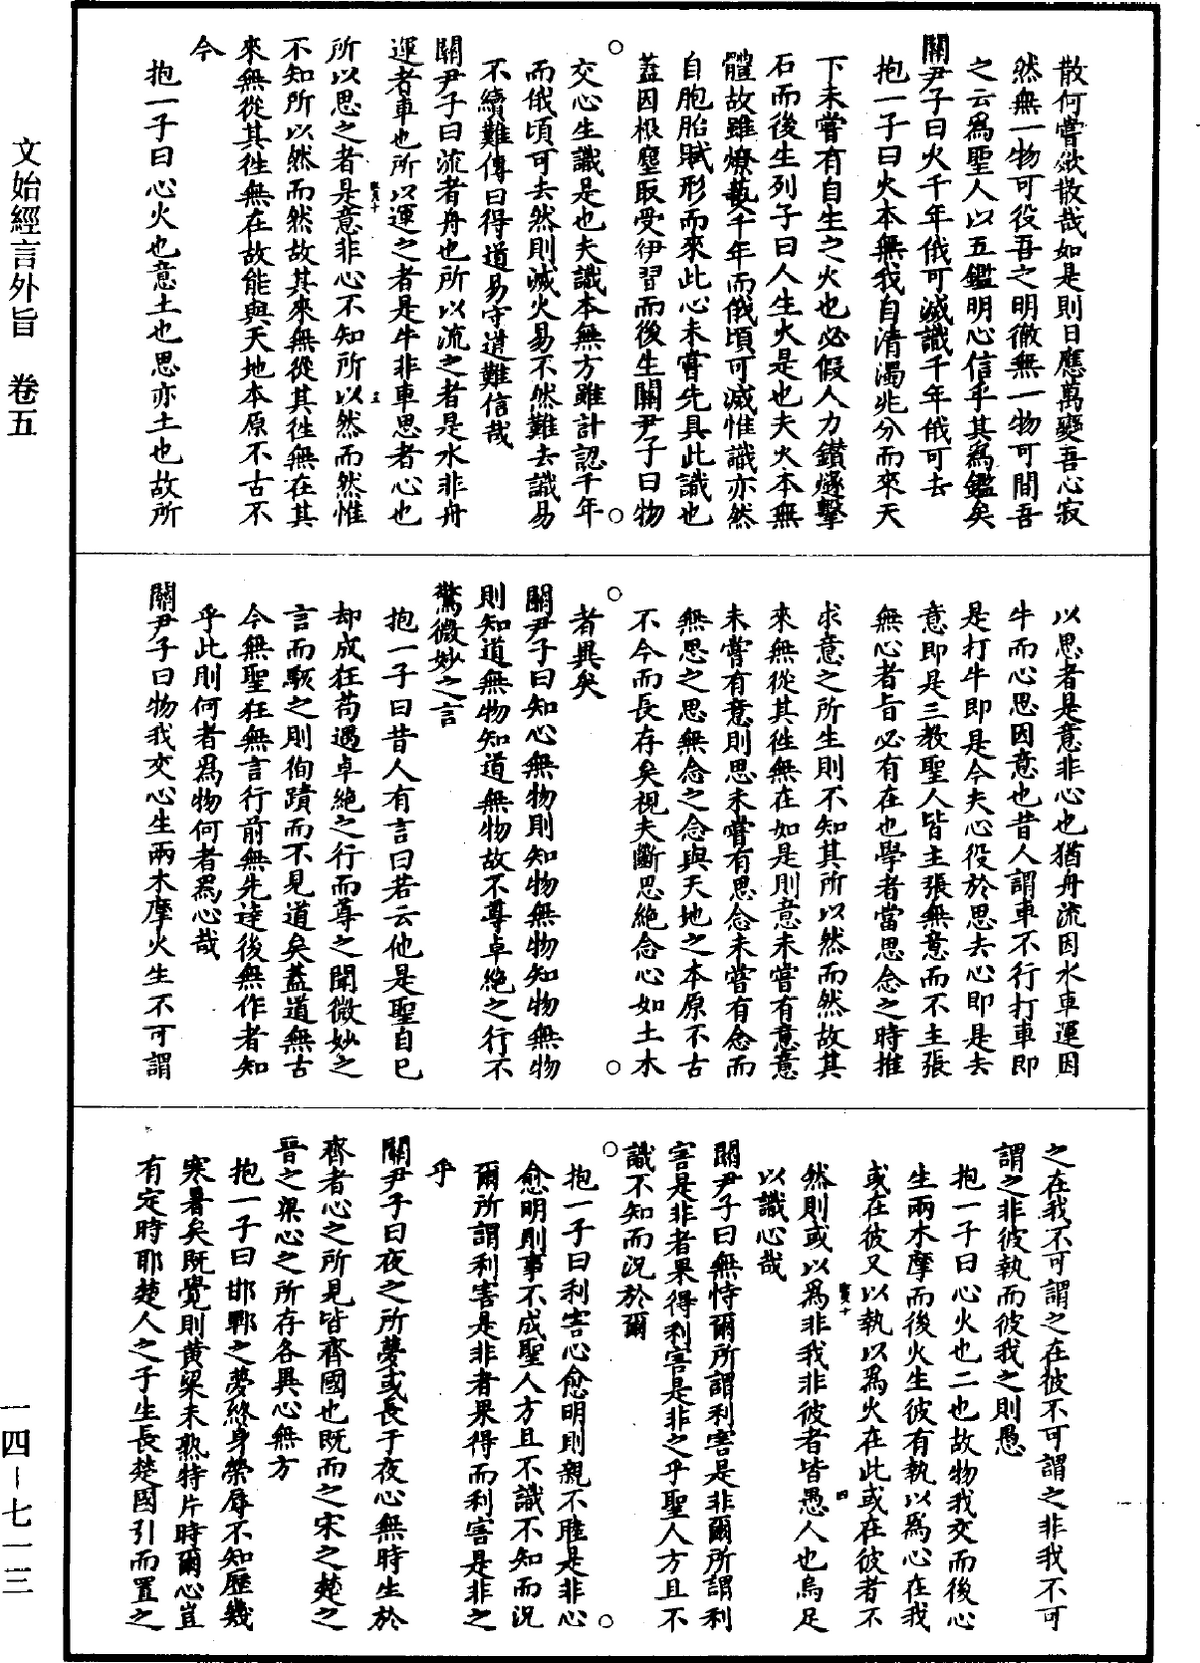 散何嘗歛散哉如是則日應萬變吾心寂
然無一物可役吾之明徹無一物可間吾
之云爲聖人以五鑑明心信乎其爲鑑矣
關尹子曰火千年俄可滅識千年俄可去
抱一子曰火本無我自清濁兆分而來天
下未嘗有自生之火也必假人力鑚燧擊
石而後生列子曰人生火是也夫火本無
體故雖燎蓺千年而俄頃可滅惟識亦然
自胞胎賦形而來此心未嘗先具此識也
蓋因根塵取受伊習而後生關尹子曰物
交心生識是也夫識本無方雖計認千年
而俄頃可去然則滅火易不然難去識易
不續難傳曰得道易守道難信哉
關尹子曰流者舟也所以流之者是水非舟
運者車也所以運之者是牛非車思者心也
所以思之者是意非心不知所以然而然惟
不知所以然而然故其來無從其徃無在其
來無從其徃無在故能與天地本原不古不
今
抱一子曰心火也意土也思亦土也故所
以思者是意非心也猶舟流因水車運因
牛而心思因意也昔人謂車不行打車即
是打牛即是今夫心役於思去心即是去
意即是三教聖人皆主張無意而不主張
無心者旨必有在也學者當思念之時推
求意之所生則不知其所以然而然故其
來無從其徃無在如是則意未嘗有意意
未嘗有意則思未嘗有思念未嘗有念而
無思之思無念之念與天地之本原不古
不今而長存矣視夫斷思絕念心如土木
者異矣
關尹子曰知心無物則知物無物知物無物
則知道無物知道無物故不尊卓絕之行不
驚微妙之言
抱一子曰昔人有言曰若云他是聖自已
却成狂苟遇卓絕之行而尊之聞微妙之
言而駭之則徇蹟而不見道矣蓋道無古
今無聖狂無言行前無先逹後無作者知
乎此則何者爲物何者爲心哉
關尹子曰物我交心生兩木摩火生不可謂
之在我不可謂之在彼不可謂之非我不可
謂之非彼執而彼我之則愚
抱一子曰心火也二也故物我交而後心
生兩木摩而後火生彼有執以爲心在我
或在彼又以執以爲火在此或在彼者不
然則或以爲非我非彼者皆愚人也烏足
以識心哉
關尹子曰無恃爾所謂利害是非爾所謂利
害是非者果得利害是非之乎聖人方且不
識不知而況於爾
抱一子曰利害心愈明則親不睢是非心
愈明則事不成聖人方且不識不知而況
爾所謂利害是非者果得而利害是非之
乎
關尹子曰夜之所夢或長于夜心無時生於
齊者心之所見皆齊國也既而之宋之楚之
晉之梁心之所存各異心無方
抱一子曰邯鄲之夢終身榮辱不知歷幾
寒暑矣既覺則黄粱未熟特片時爾心豈
有定時耶楚人之子生長楚國引而置之
文始經言外旨 卷五
一四－七一三